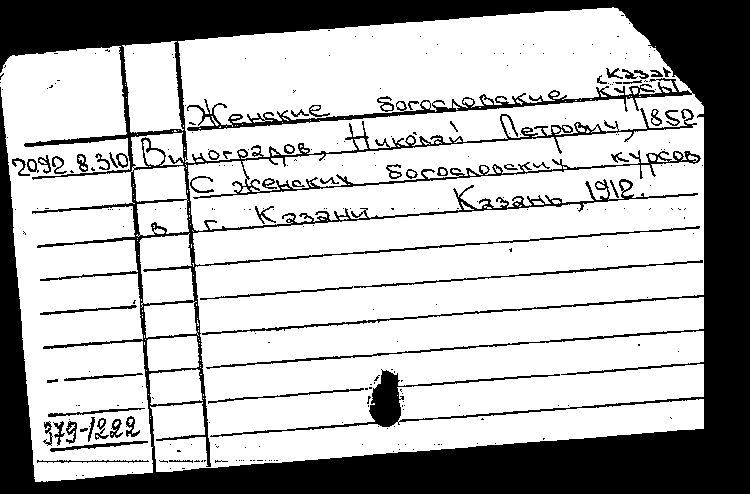 (Казань
Женские богословские курсы
2092.8.310 Виноградов, Николай Петрович, 1852-
С женских богословских курсов
в г. Казани. Казань, 1912.
379-1222